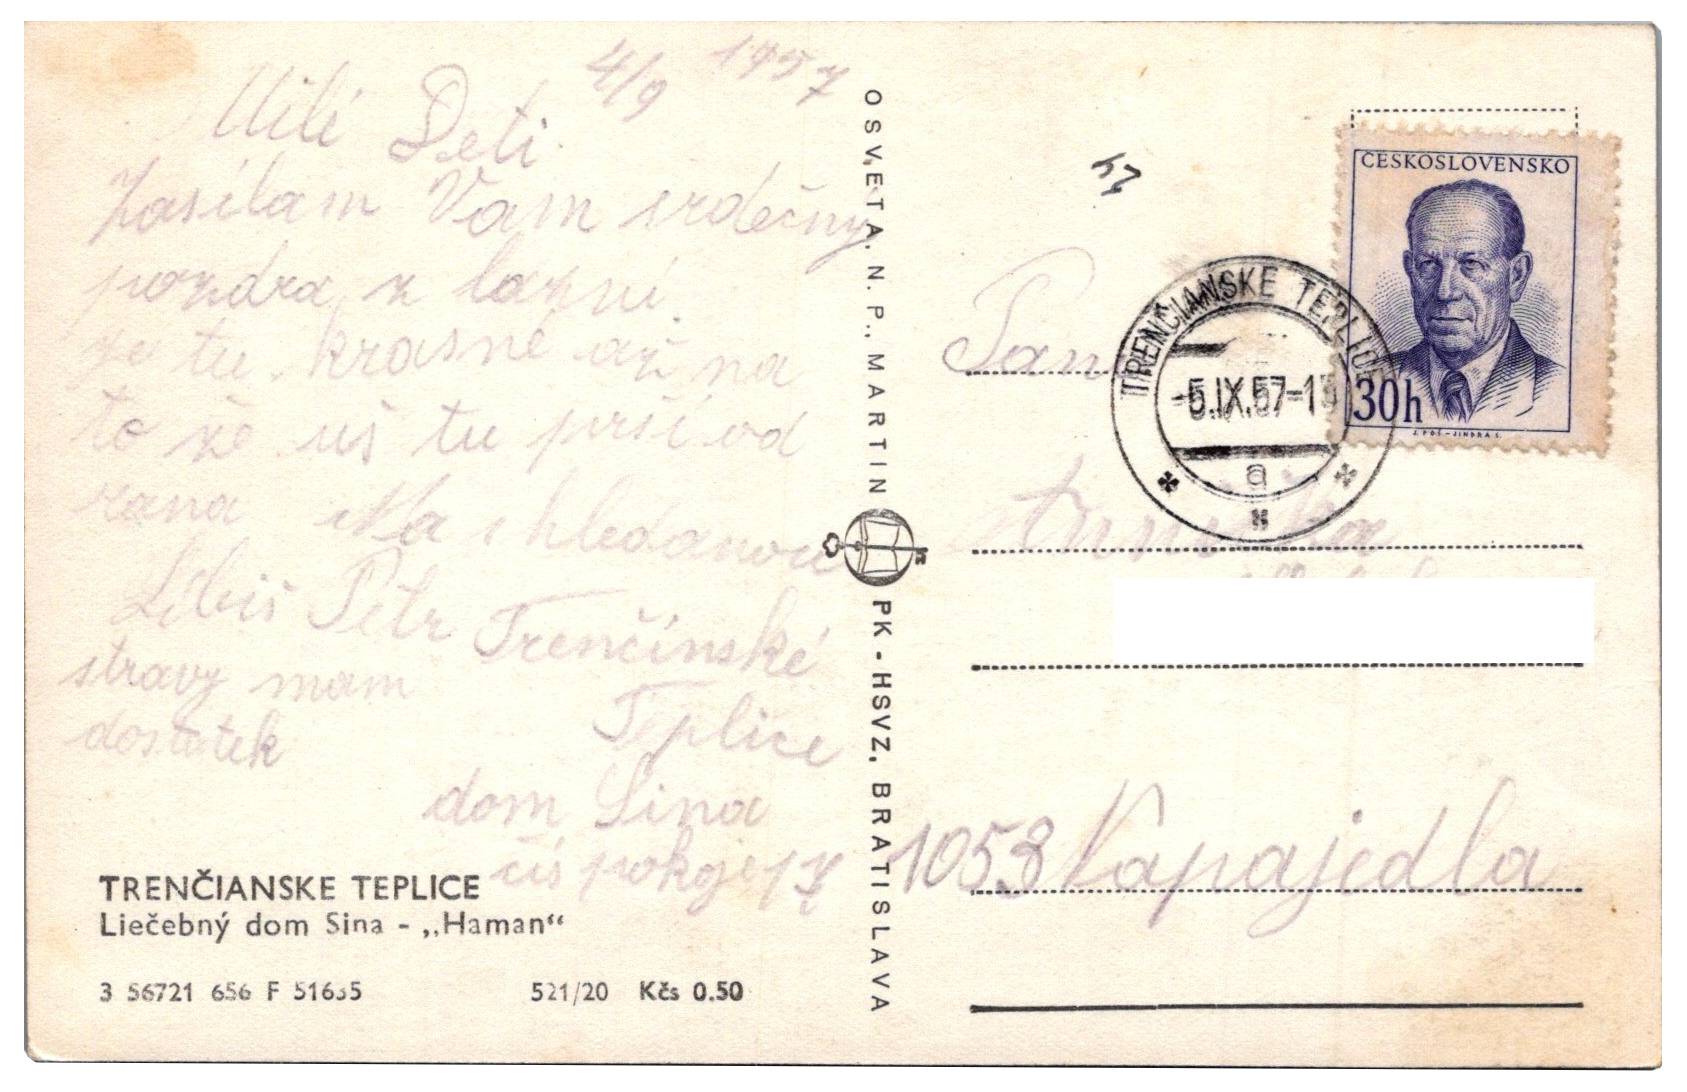 4/9 1957
Milí Deti
Zasílam Vam srdečny
pozdra z lazní.
je tu krasne až na
to že uš tu prší od
rana Na shledanou
Libuš Petr Trenčínské
stravy mam Teplice
dostatek
dom Sina
čís pokoje 17
TRENČIANSKE TEPLICE
Liečebný dom Sina - „Haman“
3 56721 656 F 51635 521/20 Kčs 0.50
OSVETA, N. P., MARTIN
PK - HSVZ, BRATISLAVA
ČESKOSLOVENSKO
30h
J. POŠ - JINDRA S.
TRENČIANSKE TEPLICE
-5.IX.57-13
a
Pan
1058 Napajedla